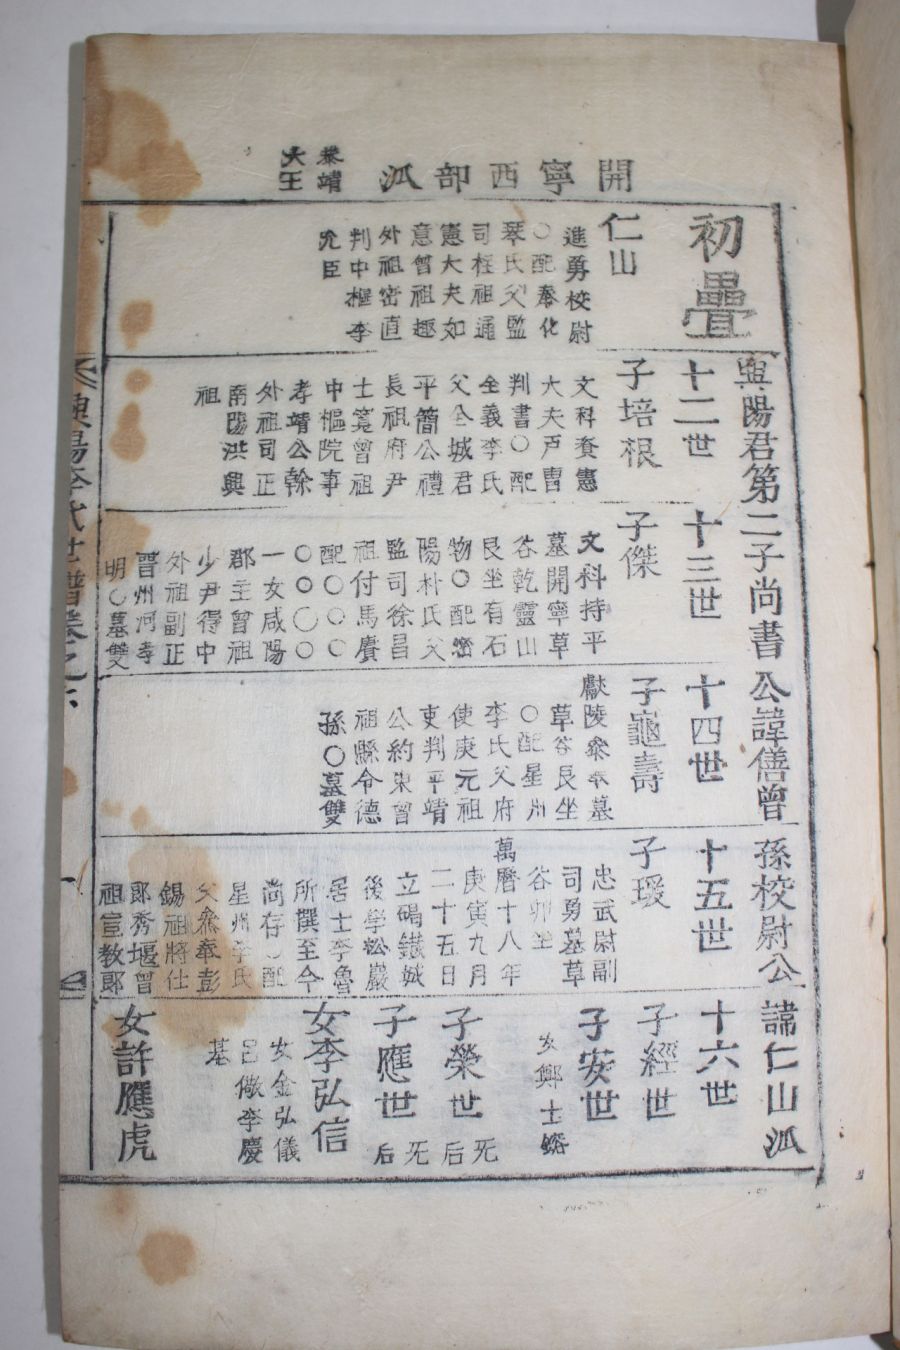 開寧西部派
恭靖
大王
寅陽君第二子尚書公諱僐曾孫校尉公諱仁山派
初疊
仁山
進勇校尉
○配奉化
琴氏父監
司柱祖通
憲大夫如
意曾祖趣
外祖密直
判中樞李
允臣
十二世
子培根
文科資憲
大夫戶曹
判書○配
全義李氏
父全城君
平簡公禮
長祖府尹
士寬曾祖
中樞院事
孝靖公幹
外祖司正
南陽洪興
祖
十三世
子傑
文科持平
墓開寧草
谷乾靈山
艮坐有石
物○配密
陽朴氏父
監司徐昌
祖付馬賡
配○○○
○○○○
一女咸陽
郡主曾祖
少尹得中
外祖副正
晋州河孝
明○墓雙
十四世
子龜壽
獻陵參奉墓
草谷艮坐
○配星州
李氏父府
使庚元祖
吏判平靖
公約東曾
祖縣令德
孫○墓雙
十五世
子瑗
忠武尉副
司勇墓草
谷卯坐
萬曆十八年
庚寅九月
二十五日
立碣鐵城
後學松巖
居士李魯
所撰至今
尚存○配
星州李氏
父參奉彭
錫祖將仕
郞秀堰曾
祖宣教郞
十六世
子經世
子安世
女鄭士
子榮世
死后
子應世
死后
女李弘信
女金弘儀
呂儆李慶
基
女許應虎
陽李氏世譜卷之下